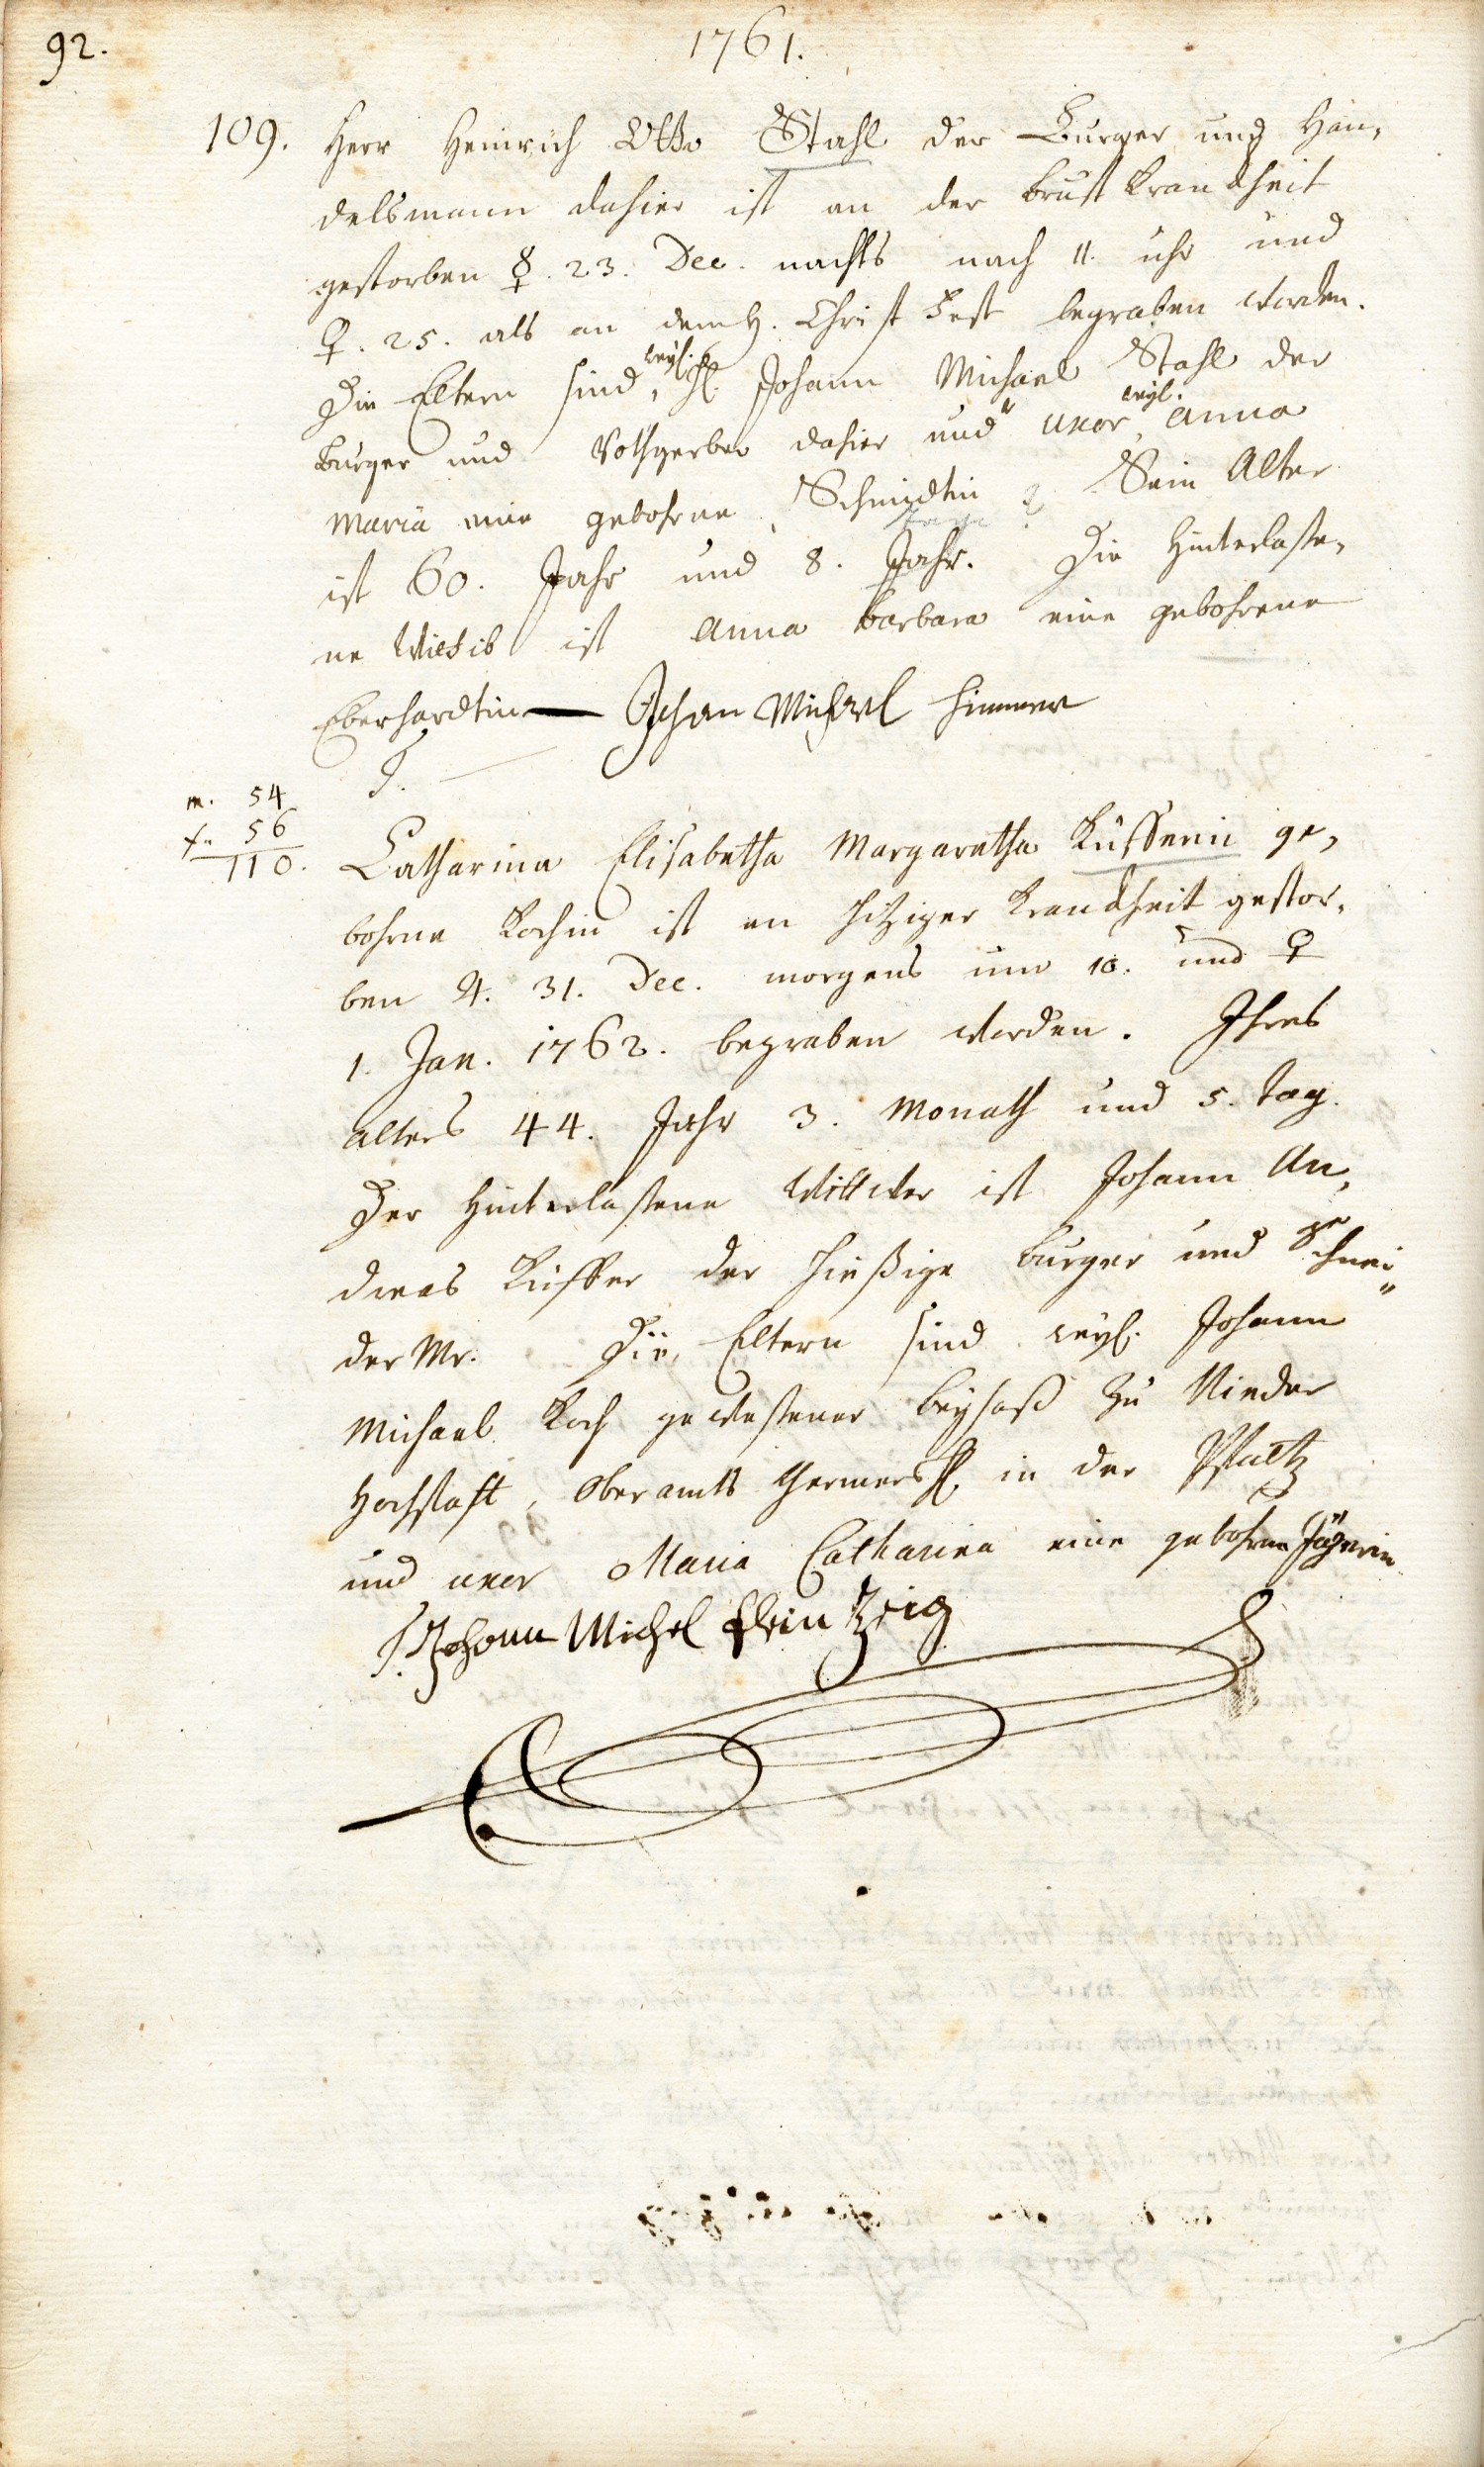 92.
1761.
109. Herr Heinrich Otto Stahl der Burger und Han,
delsmann dahier ist an der brust Kranckheit
gestorben ☿. 23. Dec. nachts nach 11. uhr und
♀. 25. als an dem H. Christ Fest begraben worden.
Die Eltern sind, weyl. H. Johann Michael Stahl der
Burger und Rothgerber dahier und uxor, weyl. Anna
Maria eine gebohrne Schmidtin Sein Alter
tage ?
ist 60. Jahr und 8. Jahr. Die Hinterlaße,
ne Wittib ist Anna Barbara eine gebohrene
Eberhardtin — Johan Michael Himmer
T.
m. 54
f. 56
110. Catharina Elisabetha Margaretha Küfferin ge,
bohrne Kochin ist an hitziger Kranckheit gestor,
ben ♃. 31. Dec. morgens um 10. und ♀
1. Jan. 1762. begraben worden. Ihres
alters 44. Jahr 3. Monath und 5. tag.
Der Hinterlaßene Wittwer ist Johann An,
dreas Küffer der hießige burger und Schnei"
der Mr. Die, Eltern sind weyl. Johann
Michael Koch gewesener beysaß zu Nieder
Hochstatt, Oberamts Germersh. in der Pfaltz
und uxor Maria Catharina eine gebohrne Jägerin
T. Johann Michel